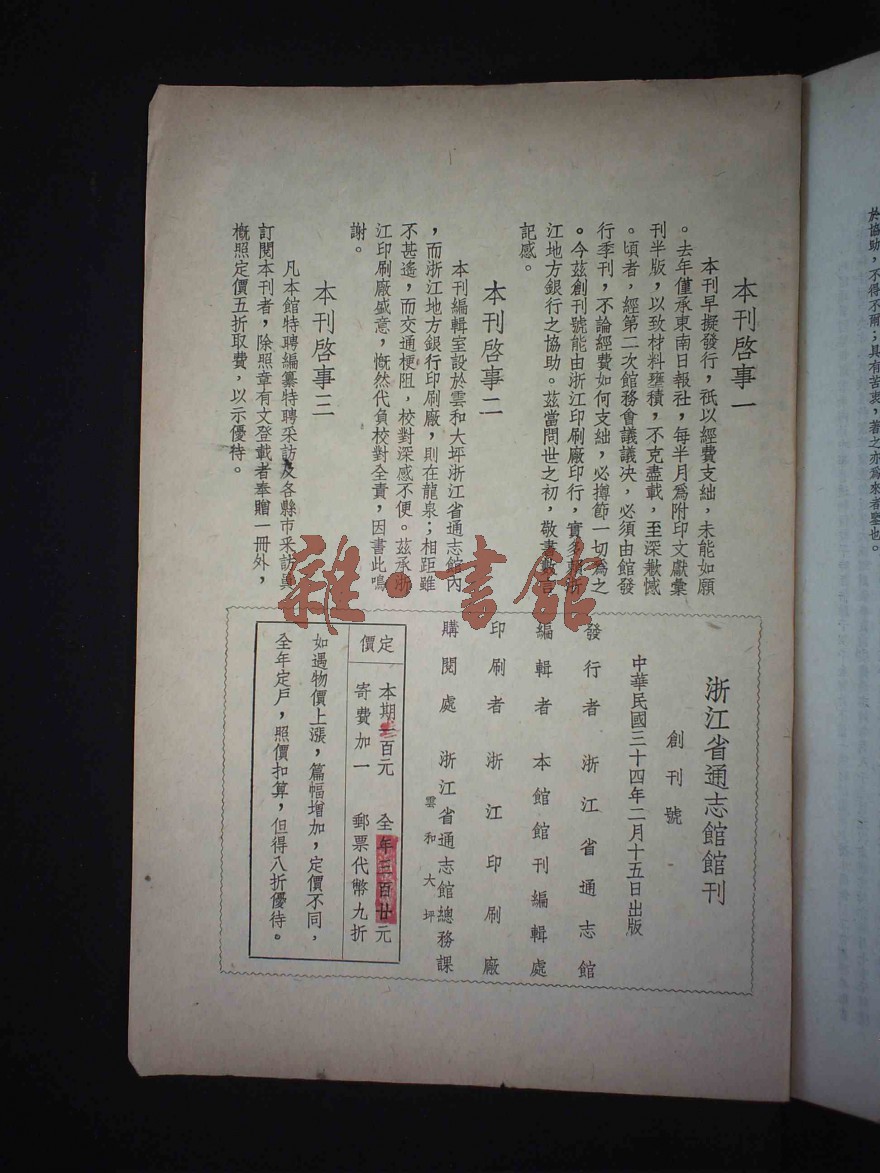 本刊啓事一
本刊早擬發行，祇以經費支絀，未能如願
。去年僅承東南日報社，每半月爲附印文獻彙
刊半版，以致材料壅積，不克盡載，至深歉憾
。頃者，經第二次館務會議議决，必須由館發
行季刊，不論經費如何支絀，必撙節一切爲之
。今茲創刊號能由浙江印刷廠印行，實多賴浙
江地方銀行之協助。茲當問世之初，敬書數言
記感。
本刊啓事二
本刊編輯室設於雲和大坪浙江省通志館內
，而浙江地方銀行印刷廠，則在龍泉；相距雖
不甚遙，而交通梗阻，校對深感不便。茲承浙
江印刷廠盛意，慨然代負校對全責，因書此鳴
謝。
本刊啓事三
凡本館特聘編纂特聘采訪及各縣市采訪員
訂閱本刊者，除照章有文登載者奉贈一冊外，
槪照定價五折取費，以示優待。
浙江省通志館館刊
創刊號
中華民國三十四年二月十五日出版
發行者 浙江省通志館
編輯者 本館館刊編輯處
印刷者 浙江印刷廠
購閱處 浙江省通志館總務課
雲和大坪
定價
本期 百元 全年三百廿元
寄費加一 郵票代幣九折
如遇物價上漲，篇幅增加，定價不同，
全年定戶，照價扣算，但得八折優待。
於協助，不得不爾；具有苦衷，著之亦爲來者鑒也。
雜·書館